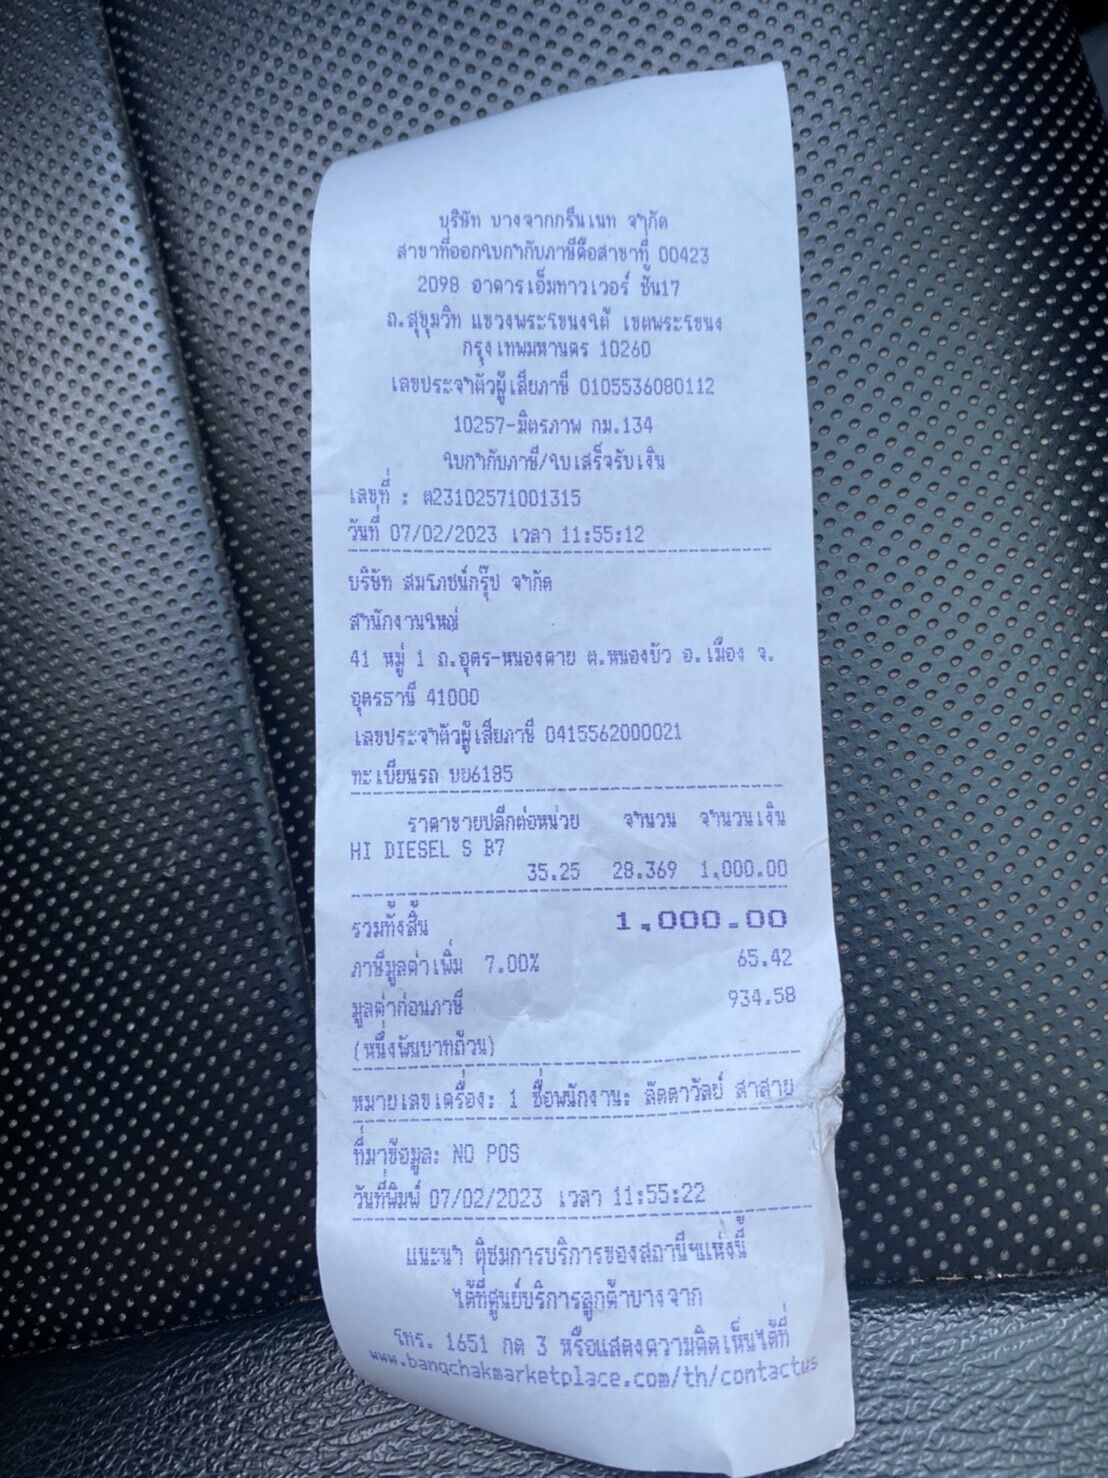 บริษัท บางจากกรีนเนท จำกัด
สาขาที่ออกใบกำกับภาษีคือสาขาที่ 00423
2098 อาคารเอ็มทาวเวอร์ ชั้น17
ถ.สุขุมวิท แขวงพระโขนงใต้ เขตพระโขนง
กรุงเทพมหานคร 10260
เลขประจำตัวผู้เสียภาษี 0105536080112
10257-มิตรภาพ กม.134
ใบกำกับภาษี/ใบเสร็จรับเงิน
เลขที่ : ต23102571001315
วันที่ 07/02/2023 เวลา 11:55:12
บริษัท สมโภชน์กรุ๊ป จำกัด
สำนักงานใหญ่
41 หมู่ 1 ถ.อุดร-หนองคาย ต.หนองบัว อ.เมือง จ.
อุดรธานี 41000
เลขประจำตัวผู้เสียภาษี 0415562000021
ทะเบียนรถ บย6185
ราคาขายปลีกต่อหน่วย จำนวน จำนวนเงิน
HI DIESEL S B7
35.25 28.369 1,000.00
รวมทั้งสิ้น 1,000.00
ภาษีมูลค่าเพิ่ม 7.00% 65.42
มูลค่าก่อนภาษี 934.58
(หนึ่งพันบาทถ้วน)
หมายเลขเครื่อง: 1 ชื่อพนักงาน: ลัดดาวัลย์ สาสาย
ที่มาข้อมูล: NO POS
วันที่พิมพ์ 07/02/2023 เวลา 11:55:22
แนะนำ ติชมการบริการของสถานีฯแห่งนี้
ได้ที่ศูนย์บริการลูกค้าบางจาก
โทร. 1651 กด 3 หรือแสดงความคิดเห็นได้ที่
www.bangchakmarketplace.com/th/contactus